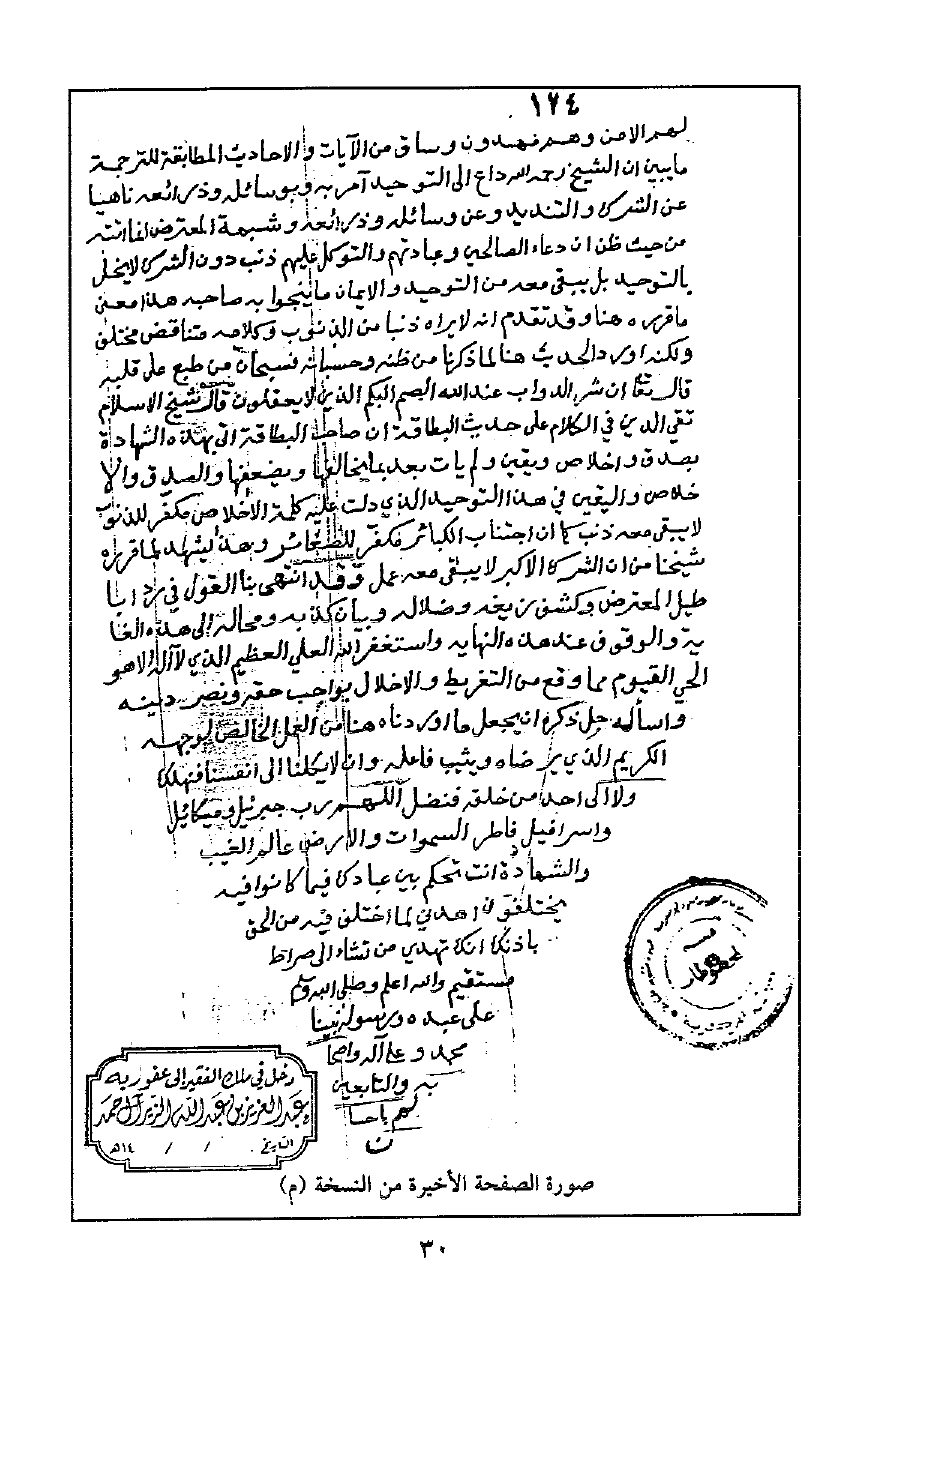 ١٢٤
لهم الامن وهم مهتدون وساق من الآيات والاحاديث المطابقة للترجمة
ما يبين ان الشيخ رحمه الله داع الى التوحيد آمر به وبوسائله وذرائعه ناهيا
عن الشرك والتنديد وعن وسائله وذرائعه وشبهة المعترض انما اتته
من حيث ظن ان دعاء الصالحين وعبادتهم والتوكل عليهم ذنب دون الشرك لا يخل
بالتوحيد بل يبقى معه من التوحيد والايمان ما ينجوا به صاحبه هذا معنى
ما قرره هنا وقد تقدم انه لا يراه ذنبا من الذنوب وكلامه متناقض مختلق
ولكنه اورد الحديث هنا لما ذكرنا من ظنه وحسبانه فسبحان من طبع على قلبه
قال تعا ان شر الدواب عند الله الصم البكم الذين لا يعقلون قال شيخ الاسلام
تقي الدين في الكلام على حديث البطاقة ان صاحب البطاقة اتى بهذه الشهادة
بصدق واخلاص ويقين ولم يات بعد بما يخالفها ويضعفها والصدق والا
خلاص واليقين في هذا التوحيد الذي دلت عليه كلمة الأخلاص مكفر للذنوب
لا يبقى معه ذنب كما ان اجتناب الكبائر مكفر للصغائر وهذا يشهد لما قرره
شيخنا من ان الشرك الاكبر لا يبقى معه عمل وقد انتهى بنا القول في رد ابا
طيل المعترض وكشف زيغه وضلاله وبيان كذبه ومحاله الى هذه الغا
ية والوقوف عند هذه النهايه واستغفر الله العلي العظيم الذي لا آله الا هو
الحي القيوم مما وقع من التفريط والاخلال بواجب حقه ونصر دينه
واسأله جل ذكره ان يجعل ما اوردناه هنا من العمل الخالص لوجهه
الكريم الذي يرضاه ويثيب فاعله وان لا يكلنا الى انفسنا فنهلك
ولا الى احد من خلقه فنضل اللهم رب جبرئيل وميكائيل
واسرافيل فاطر السموات والارض عالم الغيب
والشهادة انت تحكم بين عبادك فيما كانوا فيه
يختلفون اهدني لما اختلف فيه من الحق
باذنك انك تهدي من تشاء الى صراط
مستقيم والله اعلم وصلى الله وسلم
على عبده ورسوله نبينا
محمد وعلى آله واصحا
به والتابعين
لهم باحسا
ن
دخل في ملك الفقير الى عفو ربه
عبد العزيز بن عبد الله الزير آل حمد
التاريخ / / ١٤هـ
صورة الصفحة الأخيرة من النسخة (م)
٣٠